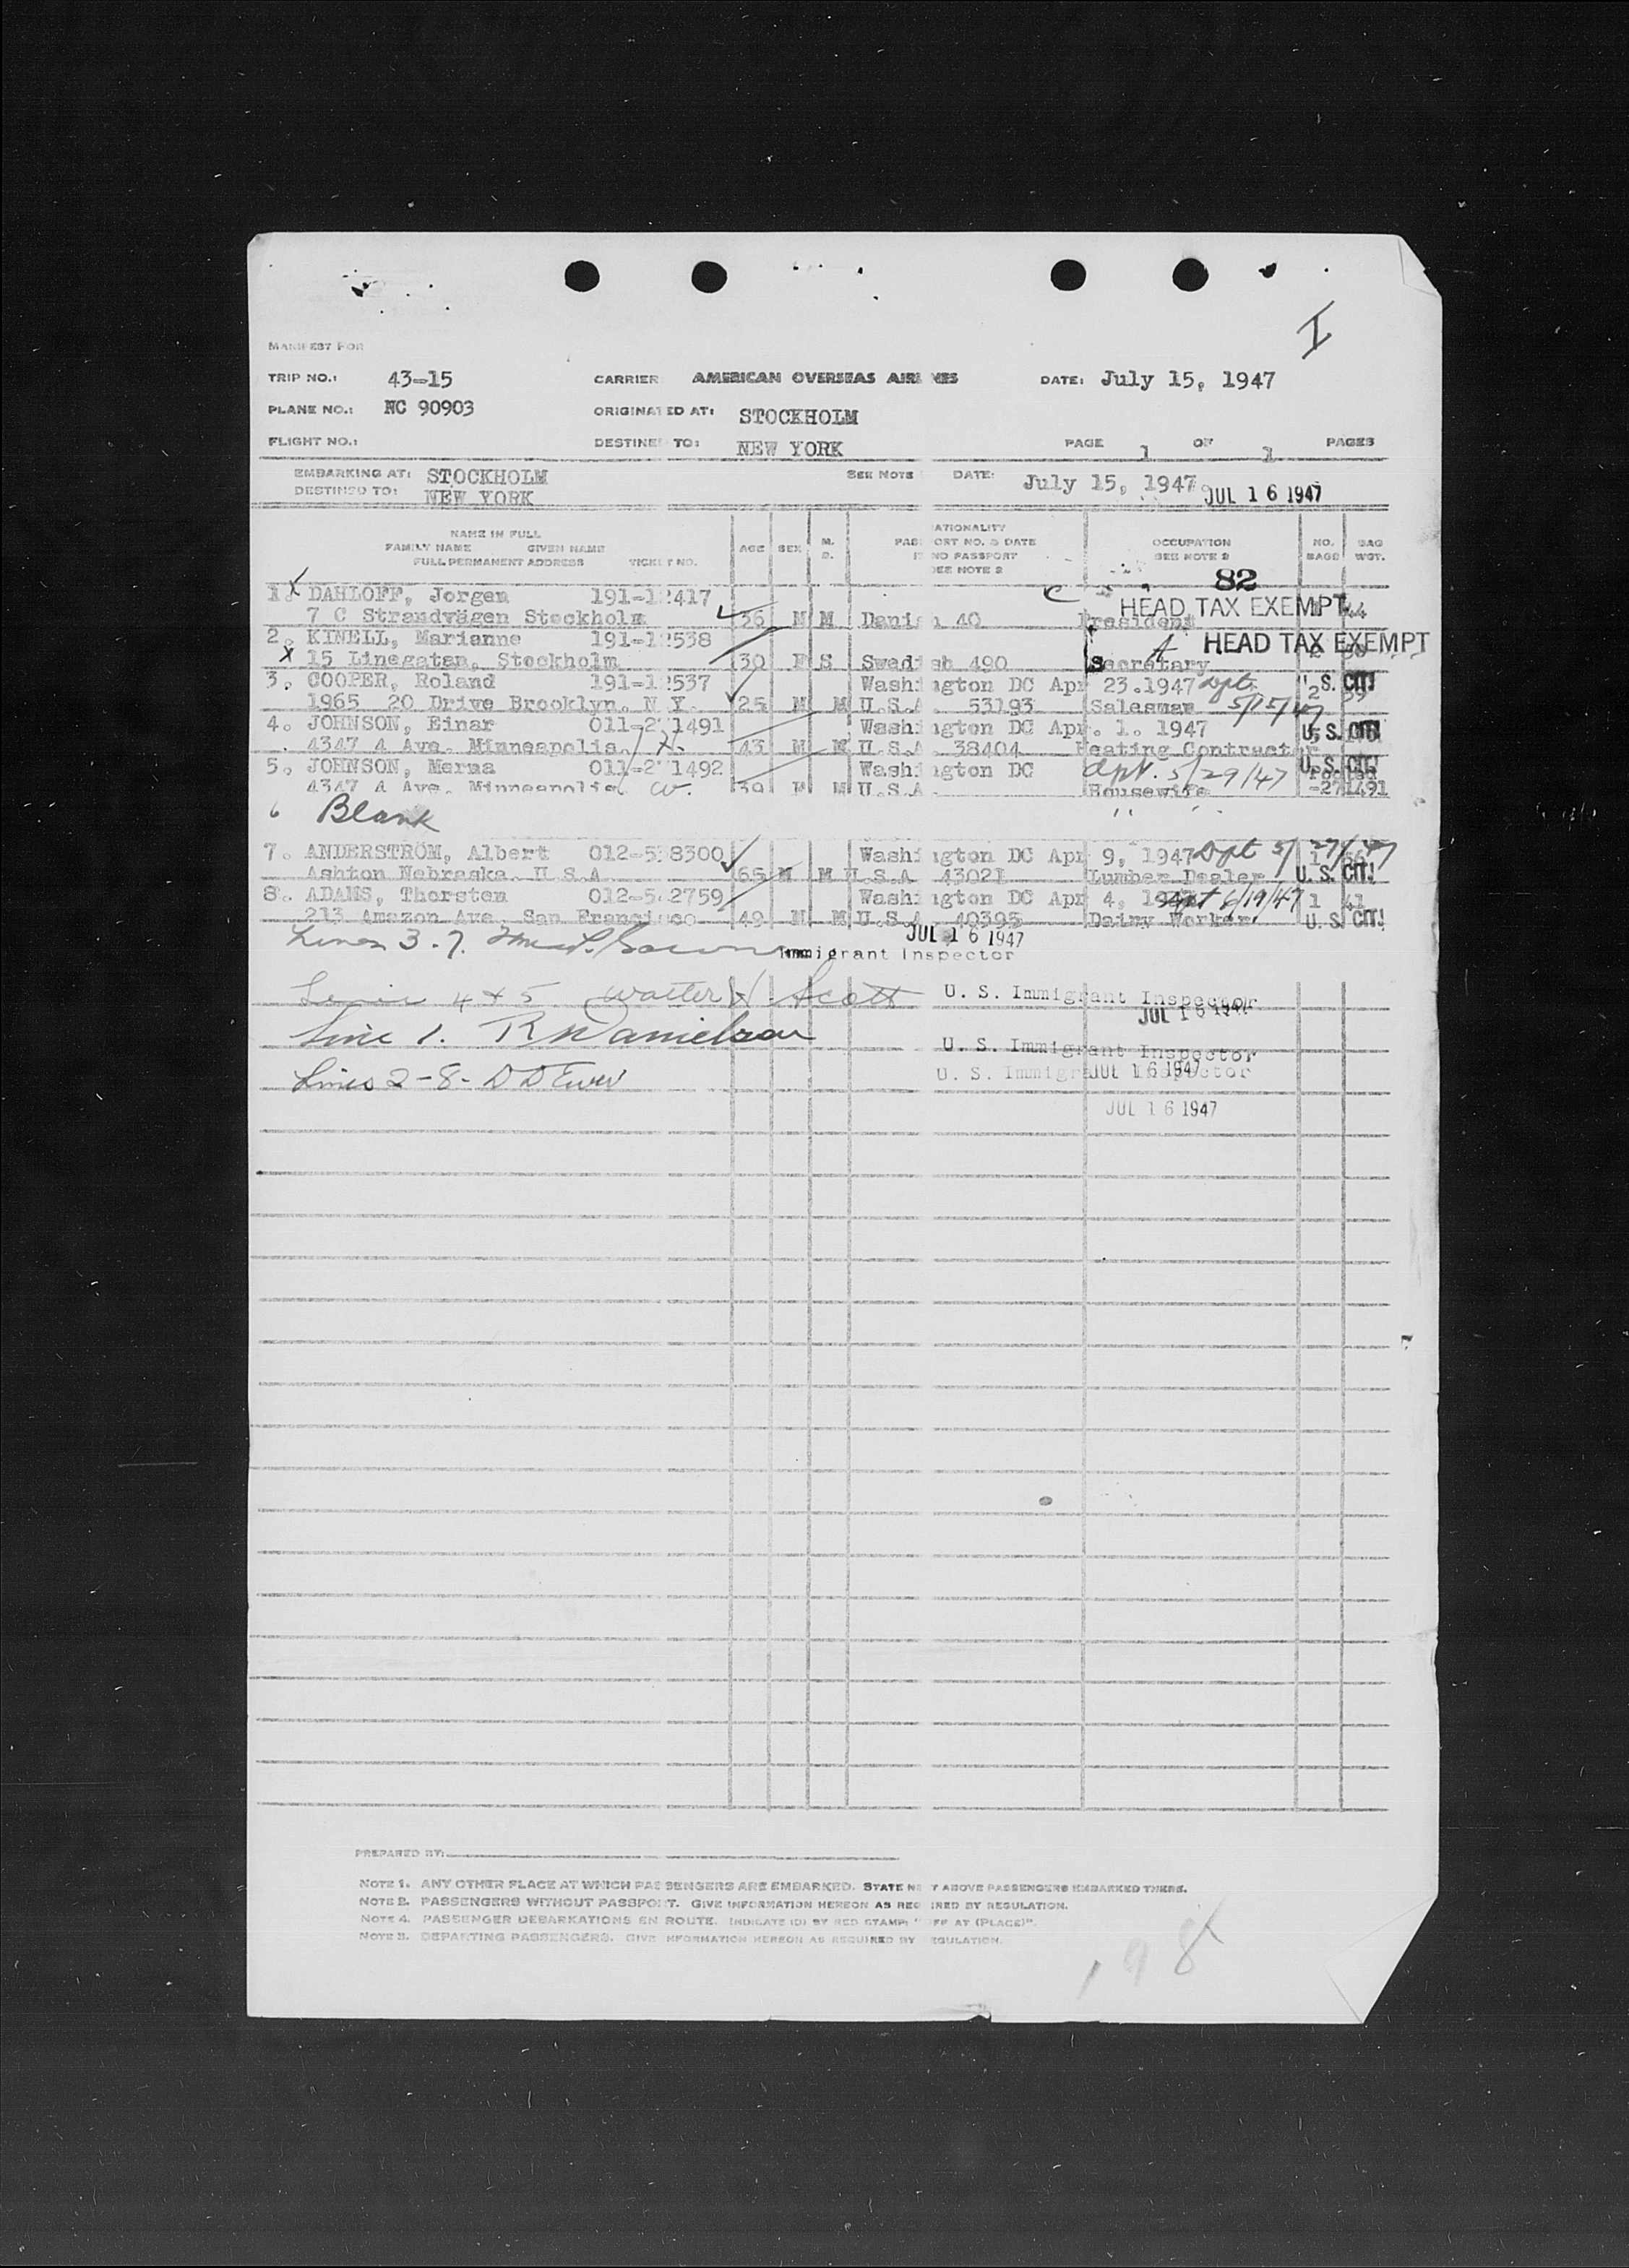 I
MANIFEST FOR
TRIP NO.: 43-15 CARRIER AMERICAN OVERSEAS AIRLINES DATE: July 15, 1947
PLANE NO.: NC 90903 ORIGINATED AT: STOCKHOLM
FLIGHT NO.: DESTINED TO: NEW YORK PAGE 1 OF 1 PAGES
EMBARKING AT: STOCKHOLM SEE NOTE DATE: July 15, 1947 JUL 16 1947
DESTINED TO: NEW YORK
NAME IN FULL
FAMILY NAME GIVEN NAME
FULL PERMANENT ADDRESS TICKET NO.
AGE SEX M. S.
NATIONALITY
PASSPORT NO. & DATE
IF NO PASSPORT
SEE NOTE 2
OCCUPATION
SEE NOTE 2
NO. BAGS BAG WGT.
82
1. X DAHLOFF, Jorgen 191-12417 C HEAD TAX EXEMPT
7 C Strandvägen Stockholm 36 M M Danish 40 President 44
2. KINELL, Marianne 191-12538 A HEAD TAX EXEMPT
X 15 Linegatan, Stockholm 30 F S Swedish 490 Secretary
3. COOPER, Roland 191-12537 Washington DC Apr 23.1947 dpt. U.S. CIT!
1965 20 Drive Brooklyn. N Y. 25 M M U.S.A. 53193 Salesman 5/25/47 2 39
4. JOHNSON, Einar 011-271491 Washington DC Apr. 1. 1947 U.S. CIT!
4347 4 Ave. Minneapolis H. 43 M M U.S.A. 38404 Heating Contractor
5. JOHNSON, Merna 011-271492 Washington DC dpt. 5/29/47 U.S. CIT! Pooled
4347 4 Ave. Minneapolis W. 39 M U.S.A. Housewife -271491
6 Blank
7. ANDERSTRÖM, Albert 012-538300 Washington DC Apr 9, 1947 Dpt 5/27/47 1
Ashton Nebraska. U S A 65 M M U.S.A. 43021 Lumber Dealer U.S. CIT!
8. ADAMS, Thorsten 012-5 2759 Washington DC Apr 4, 1947 dpt 6/19/47 1 41
213 Amazon Ave. San Francisco 49 M M U.S.A. 40395 Dairy Worker U.S. CIT!
JUL 16 1947
Lines 3-7.
Immigrant Inspector
Line 4 & 5 Walter H Scott U. S. Immigrant Inspector
JUL 16 1947
Line 1. R W Danielson U. S. Immigrant Inspector
Lines 2-8- D D Ewer U. S. Immigrant Inspector
JUL 16 1947
JUL 16 1947
PREPARED BY:
NOTE 1. ANY OTHER PLACE AT WHICH PASSENGERS ARE EMBARKED. STATE NEXT ABOVE PASSENGERS EMBARKED THERE.
NOTE 2. PASSENGERS WITHOUT PASSPORT. GIVE INFORMATION HEREON AS REQUIRED BY REGULATION.
NOTE 4. PASSENGER DEBARKATIONS EN ROUTE. INDICATE (D) BY RED STAMP: "OFF AT (PLACE)".
NOTE 3. DEPARTING PASSENGERS. GIVE INFORMATION HEREON AS REQUIRED BY REGULATION.
198